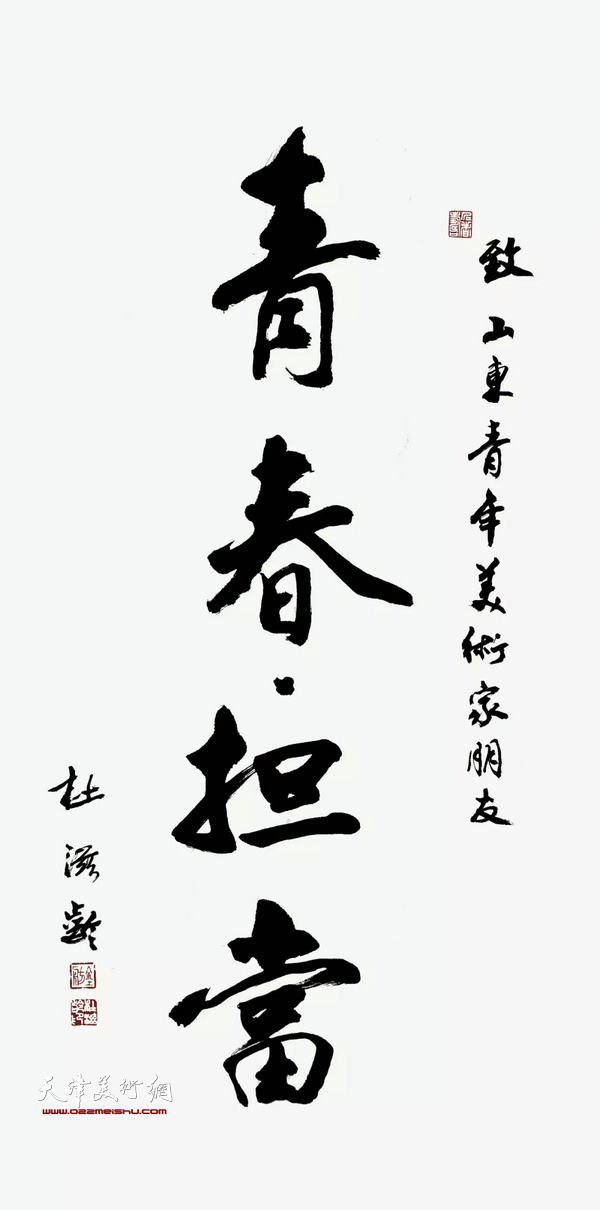 致山東青年美術家朋友
青春·担當
杜滋齡
天津美術網
www.022meishu.com